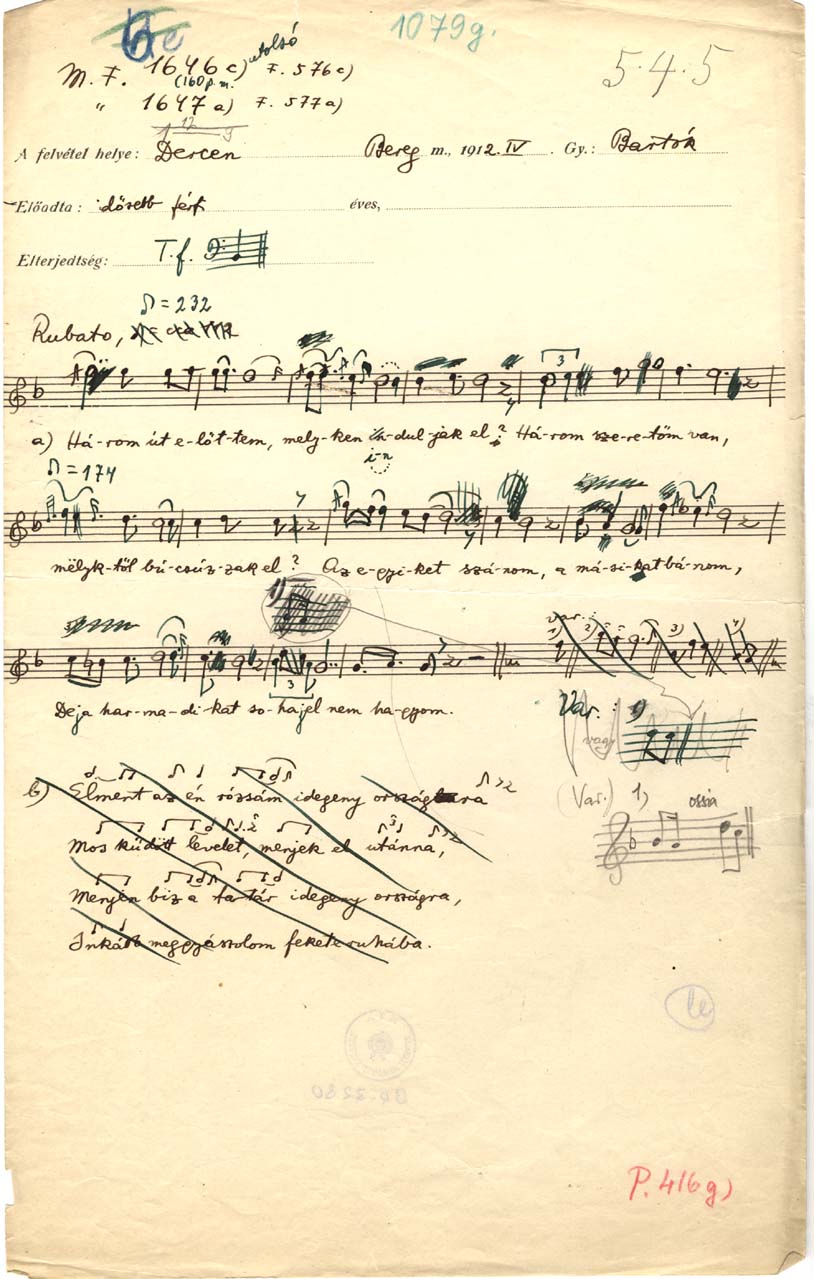 1079 g.
M. F. 1646 c) utolsó F. 576 c)
(160 p. m.
5·4·5
" 1647 a) F. 577 a)
A felvétel helye: Dercen Bereg m., 1912. IV. Gy.: Bartók
Előadta: idősebb férfi éves,
Elterjedtség: T. f.
♪ = 232
Rubato,
a) Há-rom út e-lőt-tem, mely-ken in-dul-jak el? Há-rom sze-re-tőm van,
i-n
♪ = 174
mëlyk-től bú-csúz-zak el? Az e-gyi-ket szá-nom, a má-si-kat bá-nom,
1)
var.: 1) 2) 3) 4)
De ja har-ma-di-kat so-ha jel nem ha-gyom.
Var.: 1)
vagy
b) Elment az én rózsám idegeny országra
(Var.) 1) ossia
Mos küdött levelet, menjek el utánna,
Menjen biz a tatár idegeny országra,
Inkább meggyászolom fekete ruhába.
P. 416 g)